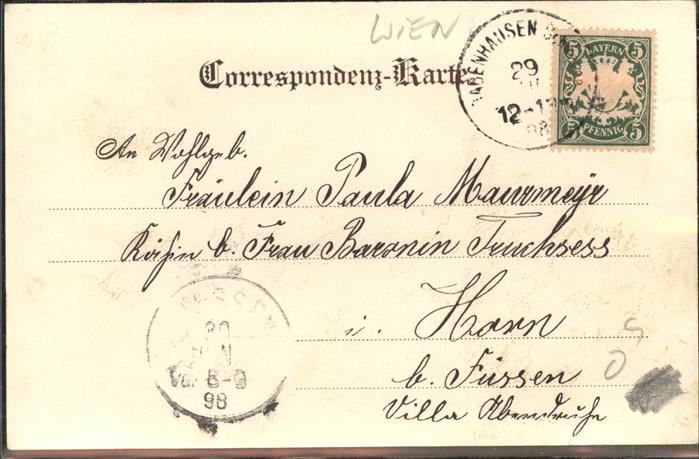 WIEN
Correspondenz-Karte
BABENHAUSEN
29
12-1
98
5 BAYERN 5
5 PFENNIG 5
An Wohlgeb.
Fräulein Paula Maurmeyr
Köchin b. Frau Baronin Truchsess
i. Horn
b. Füssen
Villa Abendruhe
FÜSSEN
30
JUN
Vm. 8-9
98
50